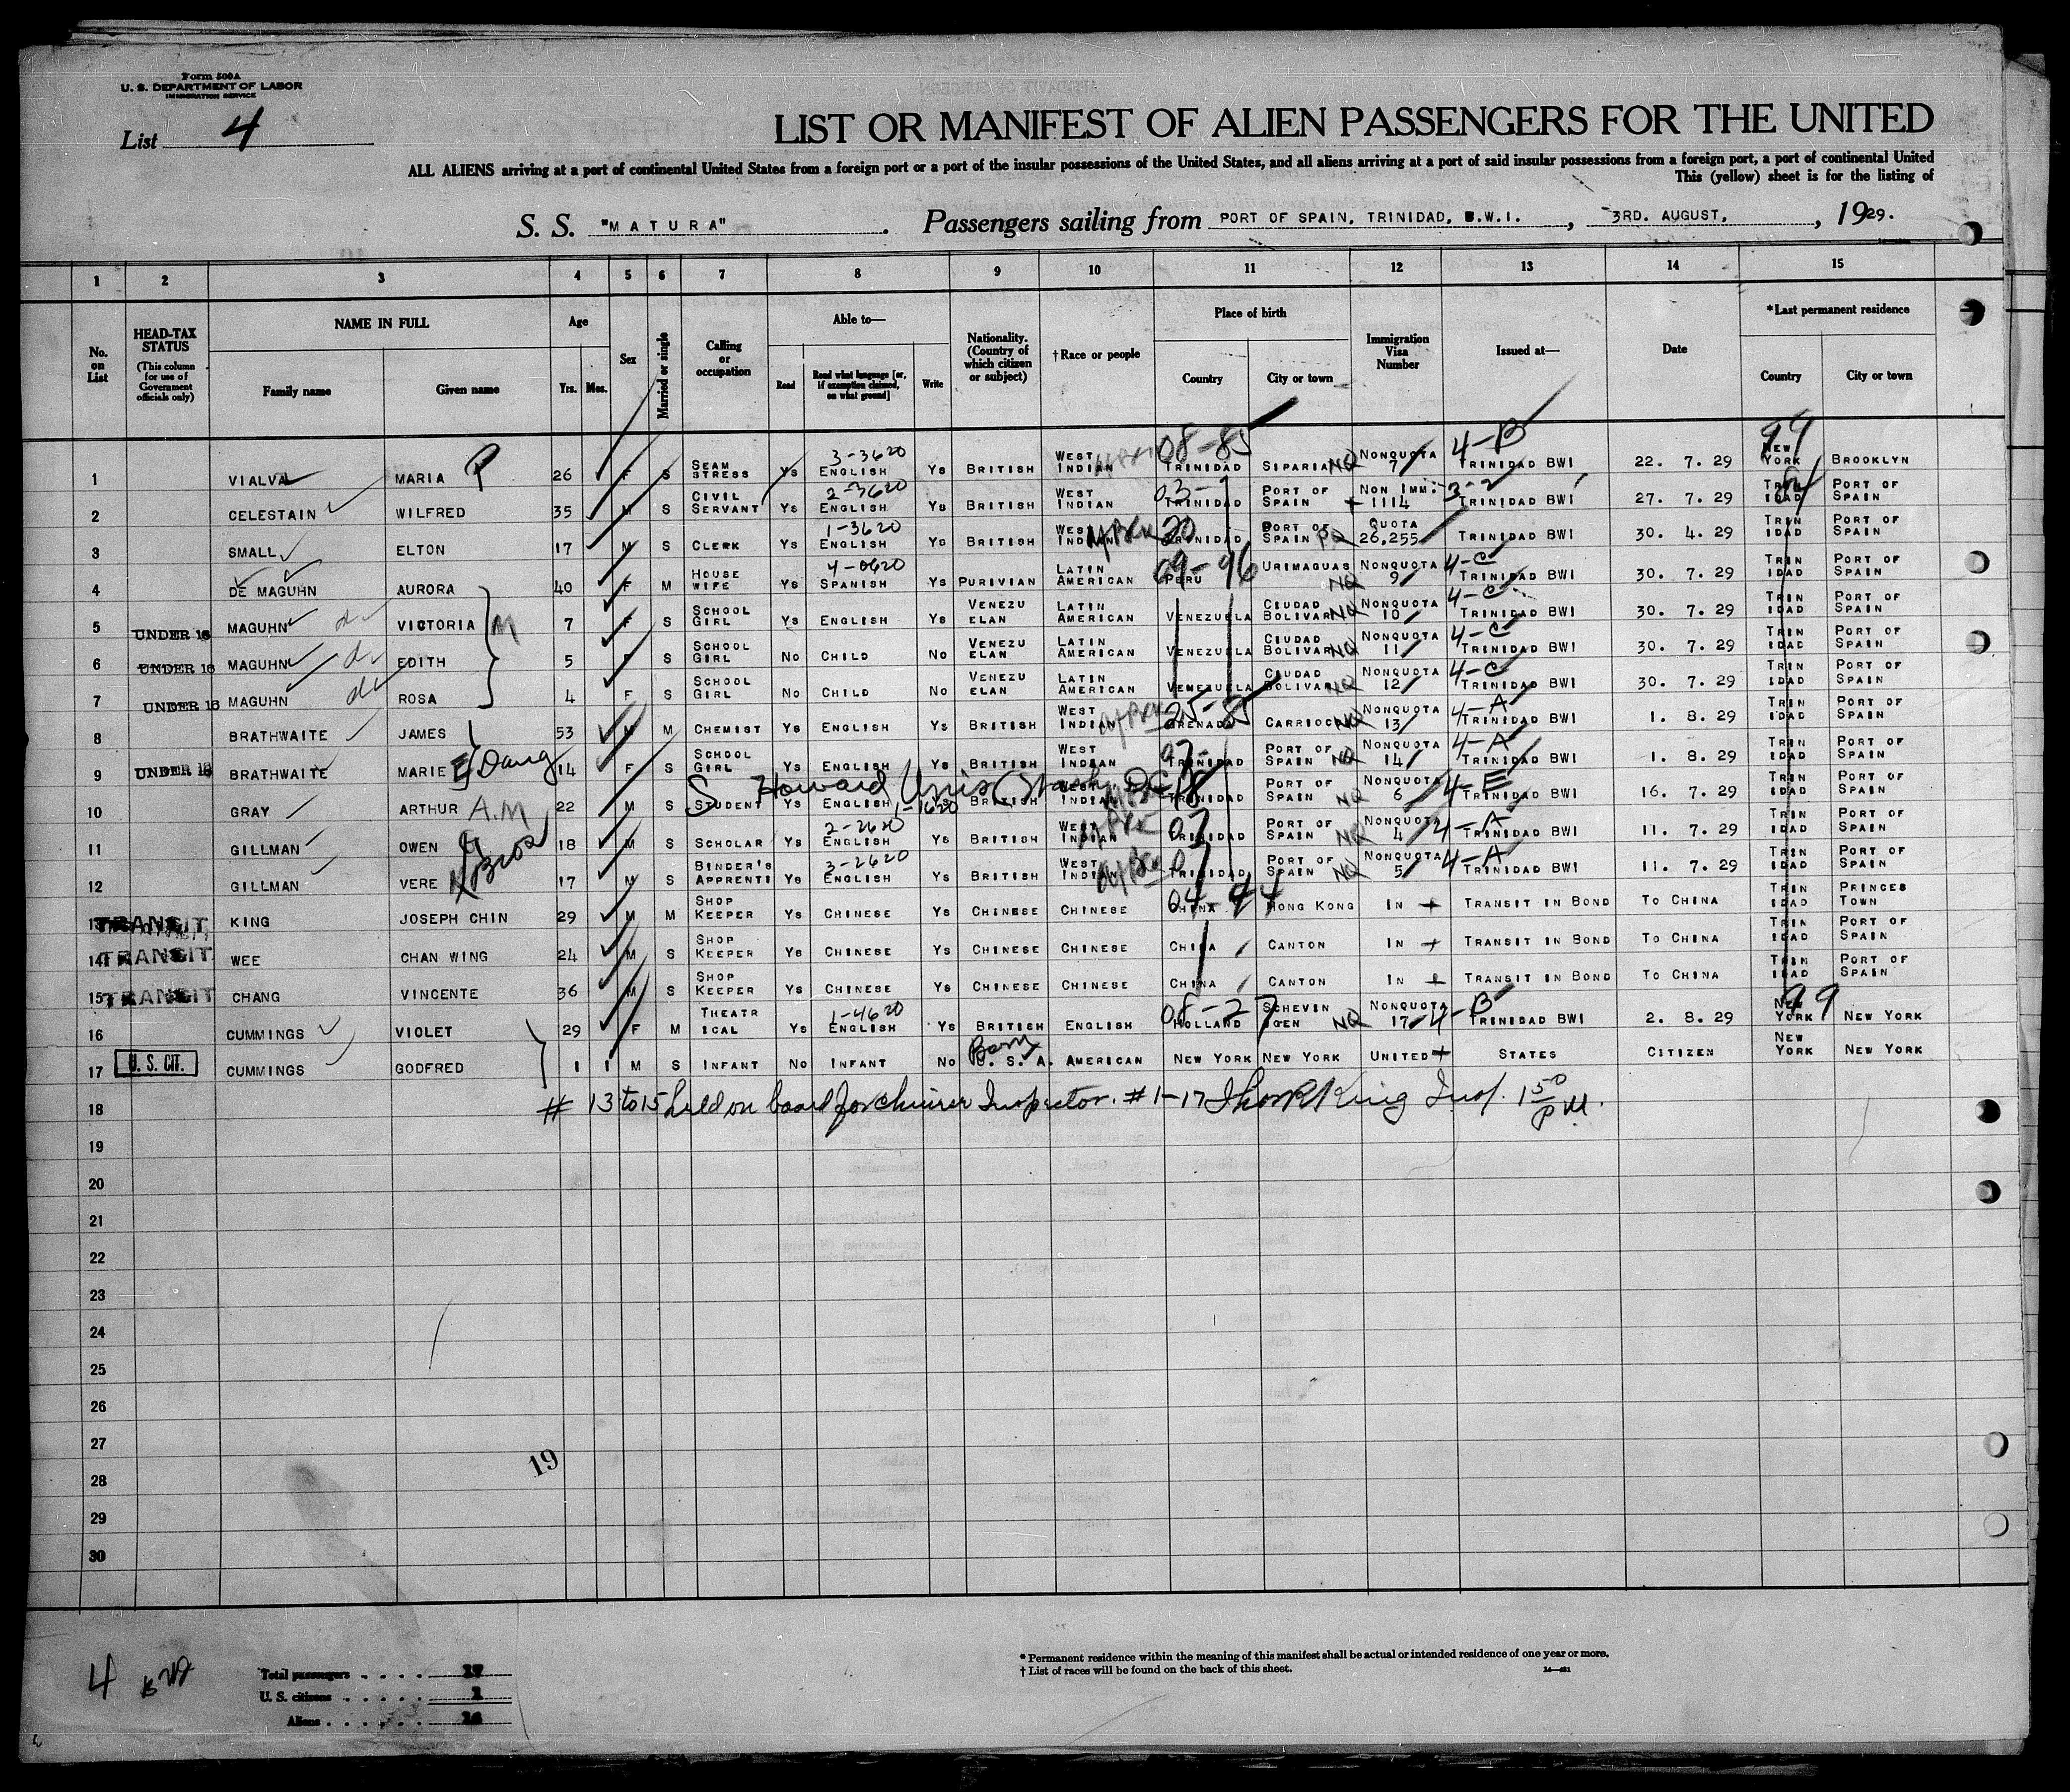 Form 500A
U. S. DEPARTMENT OF LABOR
IMMIGRATION SERVICE
List 4
LIST OR MANIFEST OF ALIEN PASSENGERS FOR THE UNITED
ALL ALIENS arriving at a port of continental United States from a foreign port or a port of the insular possessions of the United States, and all aliens arriving at a port of said insular possessions from a foreign port, a port of continental United
This (yellow) sheet is for the listing of
S. S. "MATURA". Passengers sailing from PORT OF SPAIN, TRINIDAD, B.W.I., 3RD. AUGUST, 1929.
1 2 3 4 5 6 7 8 9 10 11 12 13 14 15
No. on List
HEAD-TAX STATUS
(This column for use of Government officials only)
NAME IN FULL
Family name Given name
Age
Yrs. Mos.
Sex
Married or single
Calling or occupation
Able to—
Read Read what language [or, if exemption claimed, on what ground] Write
Nationality. (Country of which citizen or subject)
†Race or people
Place of birth
Country City or town
Immigration Visa Number
Issued at—
Date
*Last permanent residence
Country City or town
1 VIALVA MARIA P 26 F S SEAM STRESS YS 3-3620 ENGLISH YS BRITISH WEST INDIAN 08-85 TRINIDAD SIPARIA NQ NONQUOTA 7 4-B TRINIDAD BWI 22. 7. 29 99 NEW YORK BROOKLYN
2 CELESTAIN WILFRED 35 M S CIVIL SERVANT YS 2-3620 ENGLISH YS BRITISH WEST INDIAN 03- TRINIDAD PORT OF SPAIN NON IMM: 1114 3-2 TRINIDAD BWI 27. 7. 29 TRIN IDAD PORT OF SPAIN
3 SMALL ELTON 17 M S CLERK YS 1-3620 ENGLISH YS BRITISH WEST INDIAN 20 TRINIDAD PORT OF SPAIN QUOTA 26,255 TRINIDAD BWI 30. 4. 29 TRIN IDAD PORT OF SPAIN
4 DE MAGUHN AURORA 40 F M HOUSE WIFE YS 4-0620 SPANISH YS PURIVIAN LATIN AMERICAN 09-96 PERU URIMAGUAS NQ NONQUOTA 9 4-C TRINIDAD BWI 30. 7. 29 TRIN IDAD PORT OF SPAIN
5 UNDER 16 MAGUHN de VICTORIA M 7 F S SCHOOL GIRL YS ENGLISH YS VENEZU ELAN LATIN AMERICAN VENEZUELA CIUDAD BOLIVAR NQ NONQUOTA 10 4-C TRINIDAD BWI 30. 7. 29 TRIN IDAD PORT OF SPAIN
6 UNDER 16 MAGUHN de EDITH 5 F S SCHOOL GIRL NO CHILD NO VENEZU ELAN LATIN AMERICAN VENEZUELA CIUDAD BOLIVAR NQ NONQUOTA 11 4-C TRINIDAD BWI 30. 7. 29 TRIN IDAD PORT OF SPAIN
7 UNDER 16 MAGUHN de ROSA 4 F S SCHOOL GIRL NO CHILD NO VENEZU ELAN LATIN AMERICAN VENEZUELA CIUDAD BOLIVAR NQ NONQUOTA 12 4-C TRINIDAD BWI 30. 7. 29 TRIN IDAD PORT OF SPAIN
8 BRATHWAITE JAMES 53 M M CHEMIST YS ENGLISH YS BRITISH WEST INDIAN 25-85 GRENADA CARRIOC NQ NONQUOTA 13 4-A TRINIDAD BWI 1. 8. 29 TRIN IDAD PORT OF SPAIN
9 UNDER 16 BRATHWAITE MARIE E Daug 14 F S SCHOOL GIRL YS ENGLISH YS BRITISH WEST INDIAN 07- TRINIDAD PORT OF SPAIN NQ NONQUOTA 14 4-A TRINIDAD BWI 1. 8. 29 TRIN IDAD PORT OF SPAIN
10 GRAY ARTHUR A.M 22 M S S Howard Univ. Wash. DC STUDENT YS ENGLISH 1-1620 YS BRITISH WEST INDIAN TRINIDAD PORT OF SPAIN NQ NONQUOTA 6 4-E TRINIDAD BWI 16. 7. 29 TRIN IDAD PORT OF SPAIN
11 GILLMAN OWEN G 18 M S SCHOLAR YS 2-2620 ENGLISH YS BRITISH WEST INDIAN 07 TRINIDAD PORT OF SPAIN NQ NONQUOTA 4 4-A TRINIDAD BWI 11. 7. 29 TRIN IDAD PORT OF SPAIN
12 GILLMAN VERE Bros 17 M S BINDER'S APPRENTI YS 3-2620 ENGLISH YS BRITISH WEST INDIAN TRINIDAD PORT OF SPAIN NQ NONQUOTA 5 4-A TRINIDAD BWI 11. 7. 29 TRIN IDAD PORT OF SPAIN
13 TRANSIT KING JOSEPH CHIN 29 M M SHOP KEEPER YS CHINESE YS CHINESE CHINESE 04-44 CHINA HONG KONG IN TRANSIT IN BOND TO CHINA TRIN IDAD PRINCES TOWN
14 TRANSIT WEE CHAN WING 24 M S SHOP KEEPER YS CHINESE YS CHINESE CHINESE CHINA CANTON IN TRANSIT IN BOND TO CHINA TRIN IDAD PORT OF SPAIN
15 TRANSIT CHANG VINCENTE 36 M S SHOP KEEPER YS CHINESE YS CHINESE CHINESE CHINA CANTON IN TRANSIT IN BOND TO CHINA TRIN IDAD PORT OF SPAIN
16 CUMMINGS VIOLET 29 F M THEATR ICAL YS 1-4620 ENGLISH YS BRITISH ENGLISH 08-27 HOLLAND SCHEVIN GEN NQ NONQUOTA 17 4-B TRINIDAD BWI 2. 8. 29 99 NEW YORK NEW YORK
17 U. S. CIT. CUMMINGS GODFRED 1 1 M S INFANT NO INFANT NO Born U. S. A. AMERICAN NEW YORK NEW YORK UNITED STATES CITIZEN NEW YORK NEW YORK
18 # 13 to 15 held on board for chinese Inspector. # 1-17 King Insp. 1 50 PM.
19
20
21
22
23
24
25
26
27
19
28
29
30
4
Total passengers . . . . 17
U. S. citizens . . . . . 1
Aliens . . . . . . 16
* Permanent residence within the meaning of this manifest shall be actual or intended residence of one year or more.
† List of races will be found on the back of this sheet.
14—421